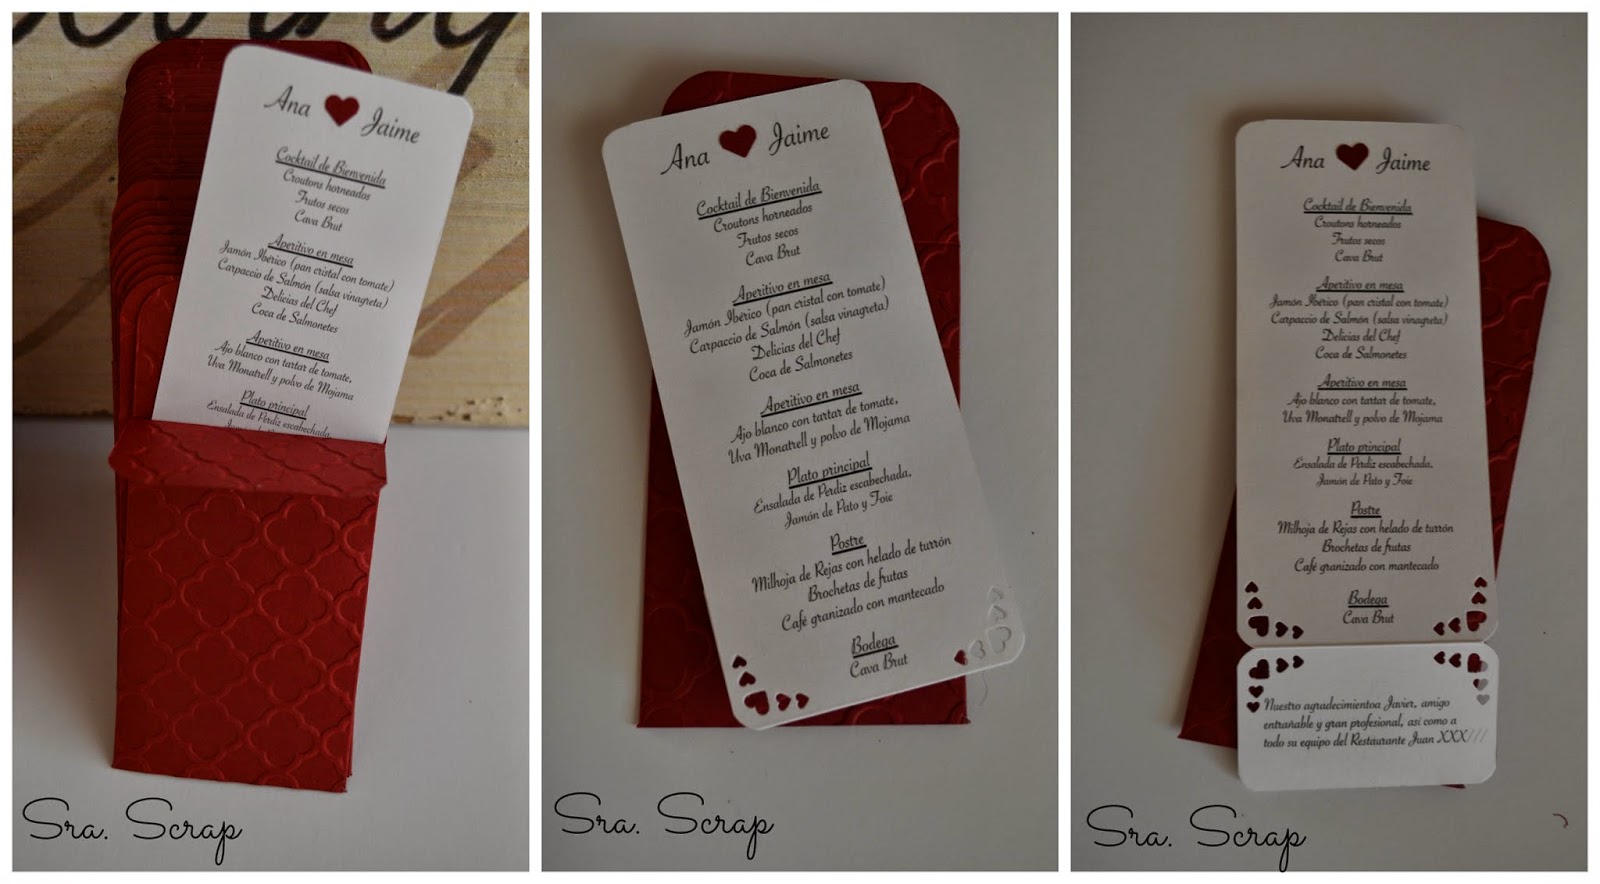 Ana Jaime
Cocktail de Bienvenida
Croutons horneados
Frutos secos
Cava Brut
Aperitivo en mesa
Jamón Ibérico (pan cristal con tomate)
Carpaccio de Salmón (salsa vinagreta)
Delicias del Chef
Coca de Salmonetes
Aperitivo en mesa
Ajo blanco con tartar de tomate,
Uva Monatrell y polvo de Mojama
Plato principal
Ensalada de Perdiz escabechada,
Sra. Scrap
Ana Jaime
Cocktail de Bienvenida
Croutons horneados
Frutos secos
Cava Brut
Aperitivo en mesa
Jamón Ibérico (pan cristal con tomate)
Carpaccio de Salmón (salsa vinagreta)
Delicias del Chef
Coca de Salmonetes
Aperitivo en mesa
Ajo blanco con tartar de tomate,
Uva Monatrell y polvo de Mojama
Plato principal
Ensalada de Perdiz escabechada,
Jamón de Pato y Foie
Postre
Milhoja de Rejas con helado de turrón
Brochetas de frutas
Café granizado con mantecado
Bodega
Cava Brut
Sra. Scrap
Ana Jaime
Cocktail de Bienvenida
Croutons horneados
Frutos secos
Cava Brut
Aperitivo en mesa
Jamón Ibérico (pan cristal con tomate)
Carpaccio de Salmón (salsa vinagreta)
Delicias del Chef
Coca de Salmonetes
Aperitivo en mesa
Ajo blanco con tartar de tomate,
Uva Monatrell y polvo de Mojama
Plato principal
Ensalada de Perdiz escabechada,
Jamón de Pato y Foie
Postre
Milhoja de Rejas con helado de turrón
Brochetas de frutas
Café granizado con mantecado
Bodega
Cava Brut
Nuestro agradecimientoa Javier, amigo
entrañable y gran profesional, así como a
todo su equipo del Restaurante Juan XXX///
Sra. Scrap